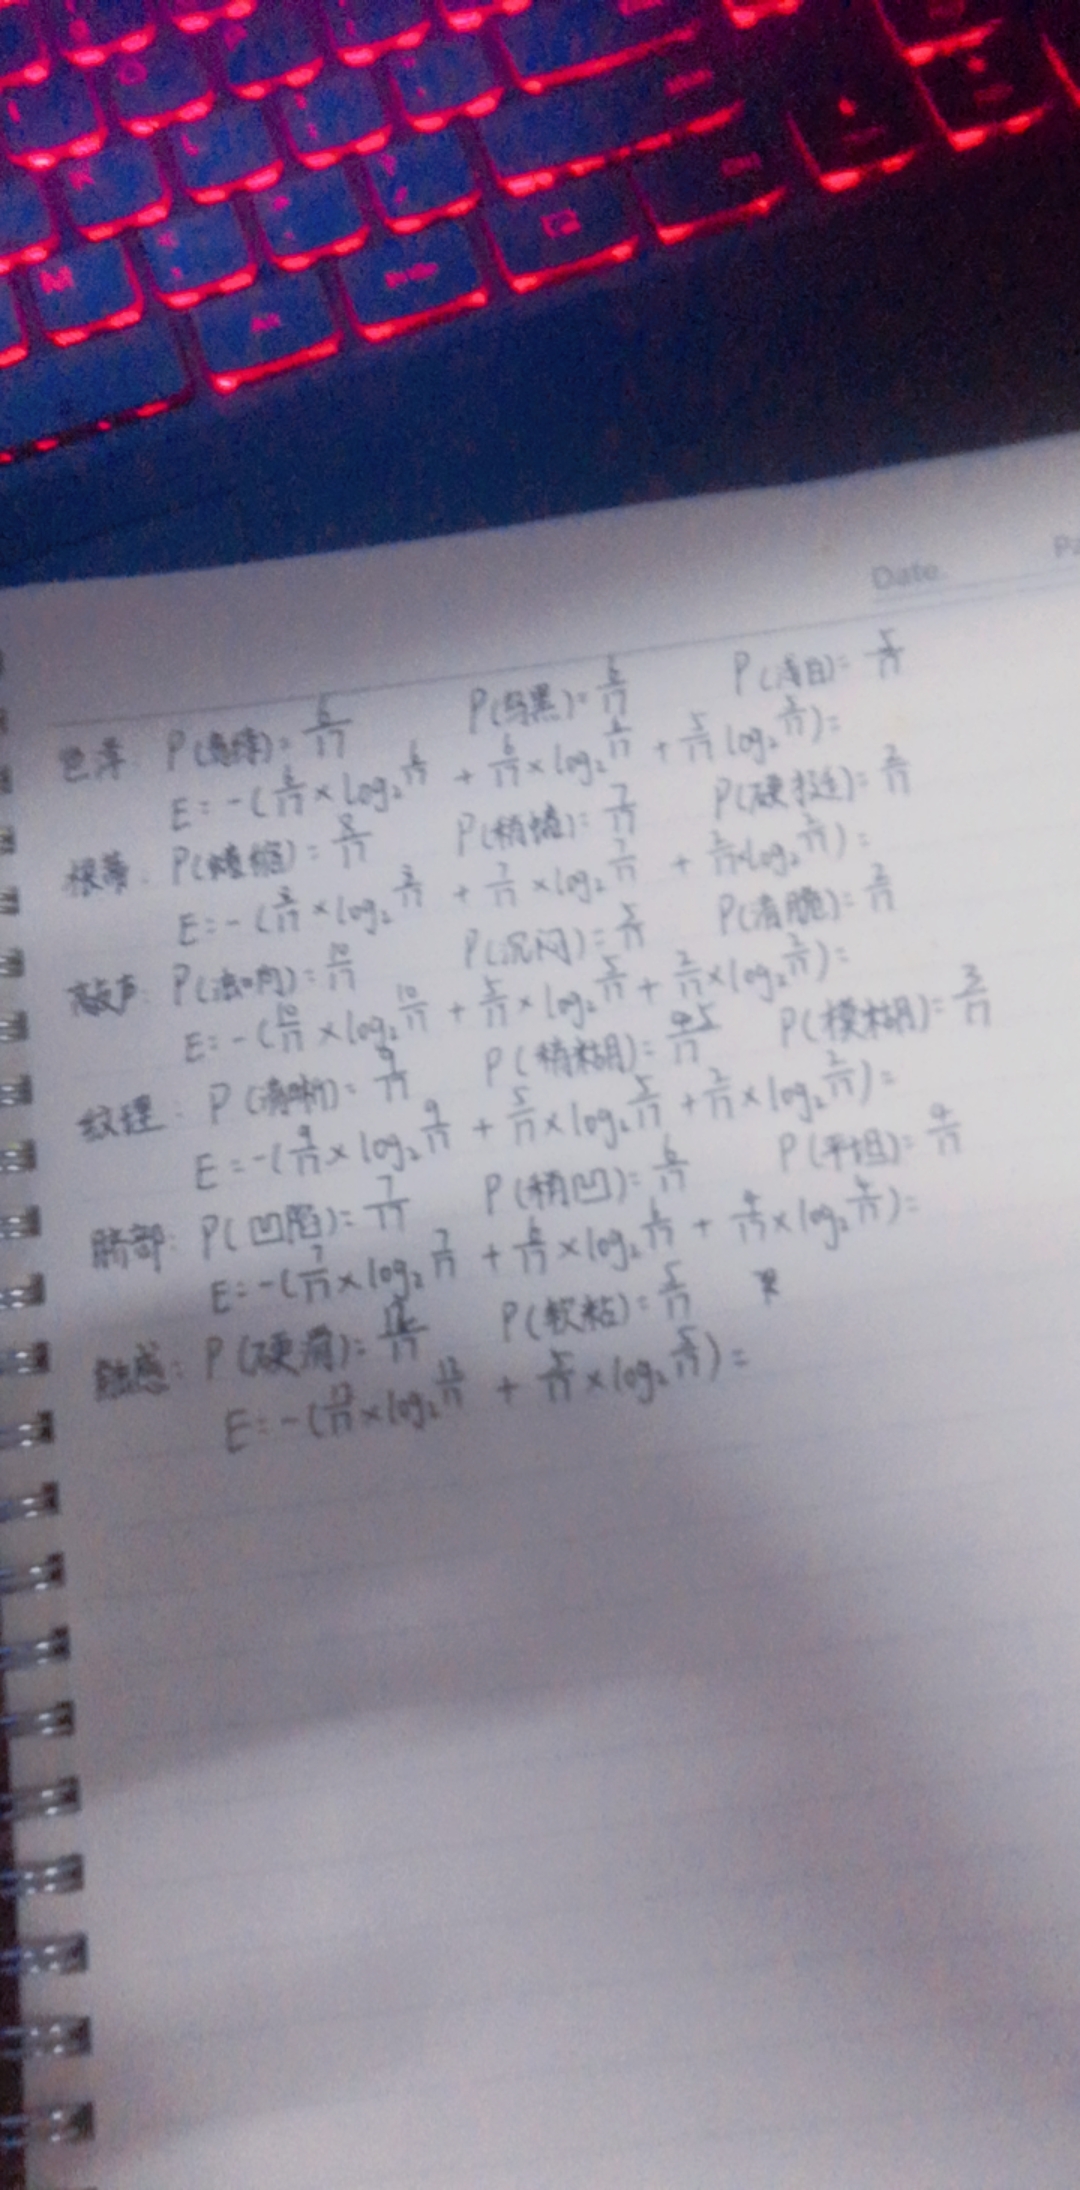 Date.
色泽: P(青绿)=6/17 P(乌黑)=6/17 P(浅白)=5/17
E=-(6/17×log₂6/17 + 6/17×log₂6/17 + 5/17 log₂5/17)=
根蒂: P(蜷缩)=8/17 P(稍蜷)=7/17 P(硬挺)=2/17
E=-(8/17×log₂8/17 + 7/17×log₂7/17 + 2/17×log₂2/17)=
敲声: P(浊响)=10/17 P(沉闷)=5/17 P(清脆)=2/17
E=-(10/17×log₂10/17 + 5/17×log₂5/17 + 2/17×log₂2/17)=
纹理: P(清晰)=9/17 P(稍糊)=5/17 P(模糊)=3/17
E=-(9/17×log₂9/17 + 5/17×log₂5/17 + 3/17×log₂3/17)=
脐部: P(凹陷)=7/17 P(稍凹)=6/17 P(平坦)=4/17
E=-(7/17×log₂7/17 + 6/17×log₂6/17 + 4/17×log₂4/17)=
触感: P(硬滑)=12/17 P(软粘)=5/17
E=-(12/17×log₂12/17 + 5/17×log₂5/17)=